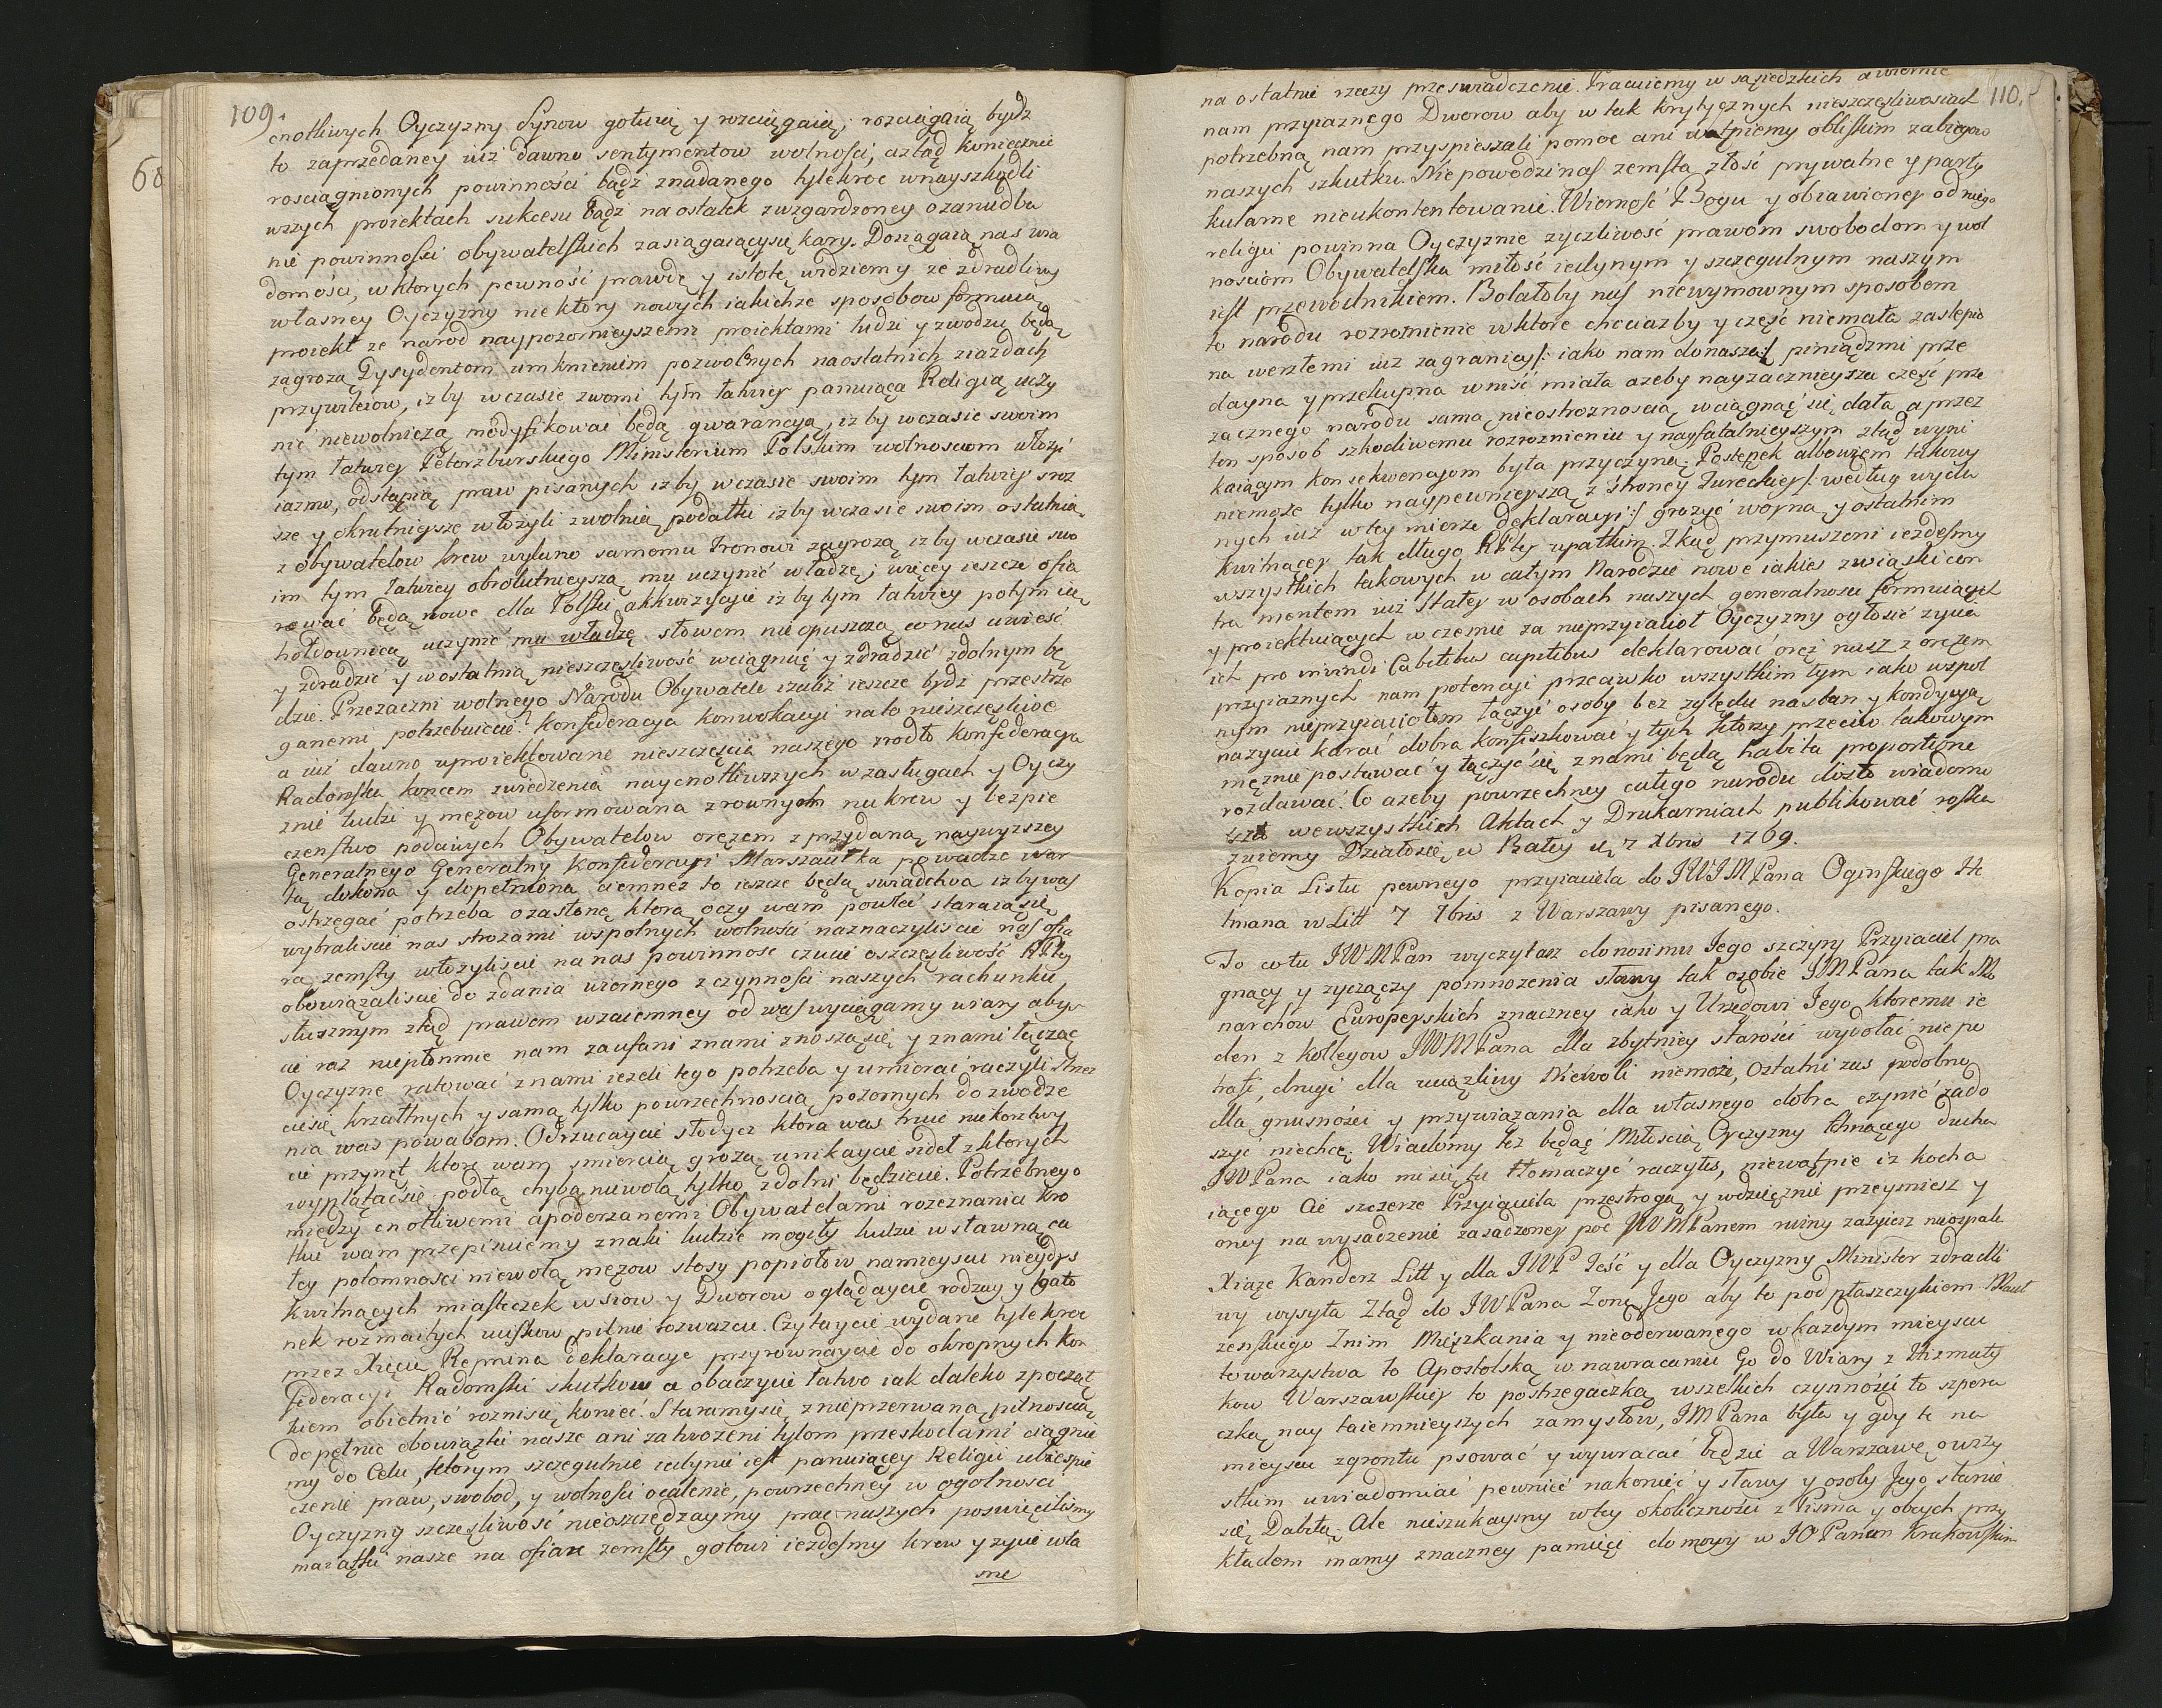 109.
cnotliwych Oyczyzny Synow gotuią y rozciągaią; rozciągaią bydź
to zaprzedaney iuż dawno sentymentow wolności, aztąd koniecznie
rosciągnionych powinności bądź znadanego tylekroc wnayszkodli
wszych proiektach sukcesu bądź na ostatek zwzgardzoney ozaniedba
nie powinności obywatelskich zasiągaiącysię kary. Dosiągaią nas wia
domości, wktorych pewność prawdę y istotę widziemy że zdradliwy
własney Oyczyzny niektory nowych iakichże sposobow formuią
proiekt ze narod naypozornieyszemi proiektami ludzi y zwodzu będą
zagrożą Dysydentom umknieniem pozwolnych na ostatnich ziazdach
przywileiow, iżby wczasie swoim tym łatwiey panuiąca Religią uczy
nić niewolniczą modyfikować będą gwarancyą, iżby wczasie swoim
tym łatwiey Peterzburskiego Ministerium Polskim wolnosciom włożyć
iazmo, odstąpią praw pisanych iżby wczasie swoim tym łatwiey sroz
sze y okrutnieysze włożyli zwolnią podatki iżby wczasie swoim ostatnią
z obywatelow krew wylano samemu Tronowi zagrożą iżby wczasie swo
im tym łatwiey obsolutnieyszą mu uczynić władzę; więcey ieszcze ofia
rować będą nowe dla Polski akkwizycyie iżby tym łatwiey potym ią
hołdownicą uczynić mu władzę słowem nieopuszczą co nas uwieść
y zdradzić y wostatnią nieszczęśliwość wciągnąć y zdradzić zdolnym bę
dzie. Przezacni wolnego Narodu Obywatele izaliż ieszcze bydź przestrze
ganemi potrzebuiecie? Konfederacya konwokacyi nato nieszczęśliwe
a iuż dawno uproiektowane nieszczęścia naszego zrodło Konfederacya
Radomska koncem zwiedzenia naycnotliwszych w zasługach y Oyczy
znie ludzi y mężow uformowana zrownym na krew y bezpie
czeństwo podawych Obywatelow orężem z przydaną naywyższey
Generalnego Generalny Konfederacyi Marszałka powadze war
tą dokona y dopełniona ciemnez to ieszcze będą swiadectwa iżby was
ostrzegać potrzeba ozasłonę ktorą oczy wam powlec staraią się
wybraliście nas strożami wspolnych wolności naznaczyliście nas ofia
rą zemsty włożyliscie na nas powinność czucie oszczęśliwość RPltey
obowiązaliście do zdania wiernego z czynności naszych rachunku,
słusznym ztąd prawem wzaiemney od was wyciągamy wiary abys
cie raz niepłonnie nam zaufani znami znosząsię y znami łącząc
Oyczyznę ratować znami ieżeli tego potrzeba y umierać raczyli strzez
ciesię krzałtnych y samą tylko powrzechnoscią pozornych do zwodze
nia was powabom. Odrzucaycie słodycz ktora was truie nie kosztuy
cie przynęt ktore wam smiercią grożą unikaycie sideł zktorych
wyplątaćsię podłą chyba niewolą tylko zdolni będziecie. Potrzebnego
między cnotliwemi apoderzanemi Obywatelami rozeznania kro
tkie wam przepisuiemy znaki ludzie mogiły ludzi wsławną ca
łey potomności niewolą mężow stosy popiołow namieyscu niegdys
kwitnących miasteczek wsiow y Dworow oglądaycie rodzay y gatu
nek rozmaitych ucisków pilnie rozważcie. Czytaycie wydane tylekroc
przez Xięcia Repnina deklaracye przyrownaycie do okropnych kon
federacyi Radomski skutkow a obaczycie łatwo iak daleko zpoczęt
kiem obietnic roznisię koniec. Staramysię z nieprzerwaną pilnoscią
dopełnić obowiązki nasze ani zatrwożeni tylom przeskodami ciągnie
my do Celu, ktorym szczegulnie iedynie iest panuiącey Religii ubespie
czenie praw, swobod, y wolności ocalenie, powrzechney w ogolności
Oyczyzny szczęśliwość nieoszczędzaymy prac naszych poswięciliśmy
maiątki nasze na ofiarę zemsty gotowi iezdesmy krew y życie wła
sne
110.
na ostatnie rzeczy przeswiadczenie. Pracuiemy w sąsiedzkich a wiernie
nam przyiaznego Dworow aby w tak krytycznych nieszczęśliwosciach
potrzebną nam przyspieszali pomoc ani wątpiemy obliskim zabiegow
naszych szkutku. Nie powodzi nas zemsta złość prywatne y party
kularne nieukontentowanie. Wierność Bogu y obiawioney od niego
religii powinna Oyczyznie życzliwość prawom swobodom y wol
nosciom Obywatelska miłość iedynym y szczegulnym naszym
iest przewodnikiem. Bolałoby nas niewymownym sposobem
to narodu rozroznienie wktore chociażby y część niemała zaslepio
na werzłemi iuż zagranicę /: iako nam donaszą :/ pieniądzmi prze
dayna y przekupna wniść miała ażeby nayzacznieysza część prze
zacnego narodu samą nieostrożnoscią wciągnąć się dała a przez
ten sposob szkodliwemu rozroznieniu y nayfatalnieyszym ztąd wyni
kaiącym konsekwencyom była przyczyną. Postępek albowiem takowy
niemoże tylko naypewnieyszą z strony Tureckiey /: według wyda
nych iuż wtey mierze deklaracyi :/ grozyć woyną y ostatnim
kwitnącey tak długo RPltey upadkiem. Zkąd przymuszeni iezdesmy
wszystkich takowych w całym Narodzie nowe iakies związki con
tra mentem iuż Statey w osobach naszych generalności formuiących
y proiektuiących wczesnie za nieprzyiacioł Oyczyzny ogłosić życia
ich pro invindi Cabilibus capitibus deklarować oręż nasz z orężem
przyiaznych nam potencyi przeciwko wszystkim tym iako wspol
nym nieprzyiaciołom łączyć osoby bez zględu na stan y kondycyą
nażyciu karać dobra konfiszkować y tych ktorzy przeciw takowym
mężnie postawać y łączyćsię znami będą habita proportione
rozdawać. Co ażeby powrzechney całego narodu doszło wiadomo
sci wewszystkich Aktach y Drukarniach publikować roska
zuiemy Działosię w Bałcy d 7 Xbris 1769.
Kopia Listu pewnego przyiaciela do JWJMPana Oginskiego He
tmana w Litt 7 7bris z Warszawy pisanego.
To co tu JWMPan wyczytasz donosi mu Jego szczyry Przyiaciel pra
gnący y życzączy pomnożenia sławy tak osobie JMPana tak Mo
narchow Europeyskich znaczney iako y Urzędowi Jego, ktoremu ie
den z kollegow JWMPana dla zbytniey starości wydołać niepo
trafi, drugi dla uciązliwy Niewoli niemoże, Ostatni zas podobno
dla gnusności y przywiązania dla własnego dobra czynić zado
szyć niechcę. Wiadomy też będąć Miłoscią Oyczyzny tchnącego ducha
JWPana iako mi się tu tłomaczyć raczyłeś, niewątpie iż kocha
iącego Cie szczerze Przyiaciela przestrogę y wdzięcznie przeymiesz y
oney na wysadzenie zasadzoney pod JWMPanem miny zażyiesz nieospale
Xiąże Kanclerz Litt y dla JWP Teść y dla Oyczyzny Minister zdradli
wy wysyła Ztąd do JWPana Zonę Jego aby to pod płaszczykiem Małż
żenskiego Znim Mieszkania y nieoderwanego wkażdym mieyscu
towarzystwa to Apostolską wnawracaniu Go do Wiary z Hizmaty
kow Warszawskiey to postrzegaczką wszelkich czynności to szpera
czką nay taiemnieyszych zamysłow, JMPana była y gdy te na
mieyscu zgrontu psować y wywracać będzie a Warszawę owszy
stkim uwiadomiać pewnieć nakoniec y sławy y osoby Jego stanie
się Dabiłą. Ale nieszukaymy wtey okoliczności z Pisma y obcych przy
kładow mamy znaczney pamięci domowy w JOPanem Krakowskim